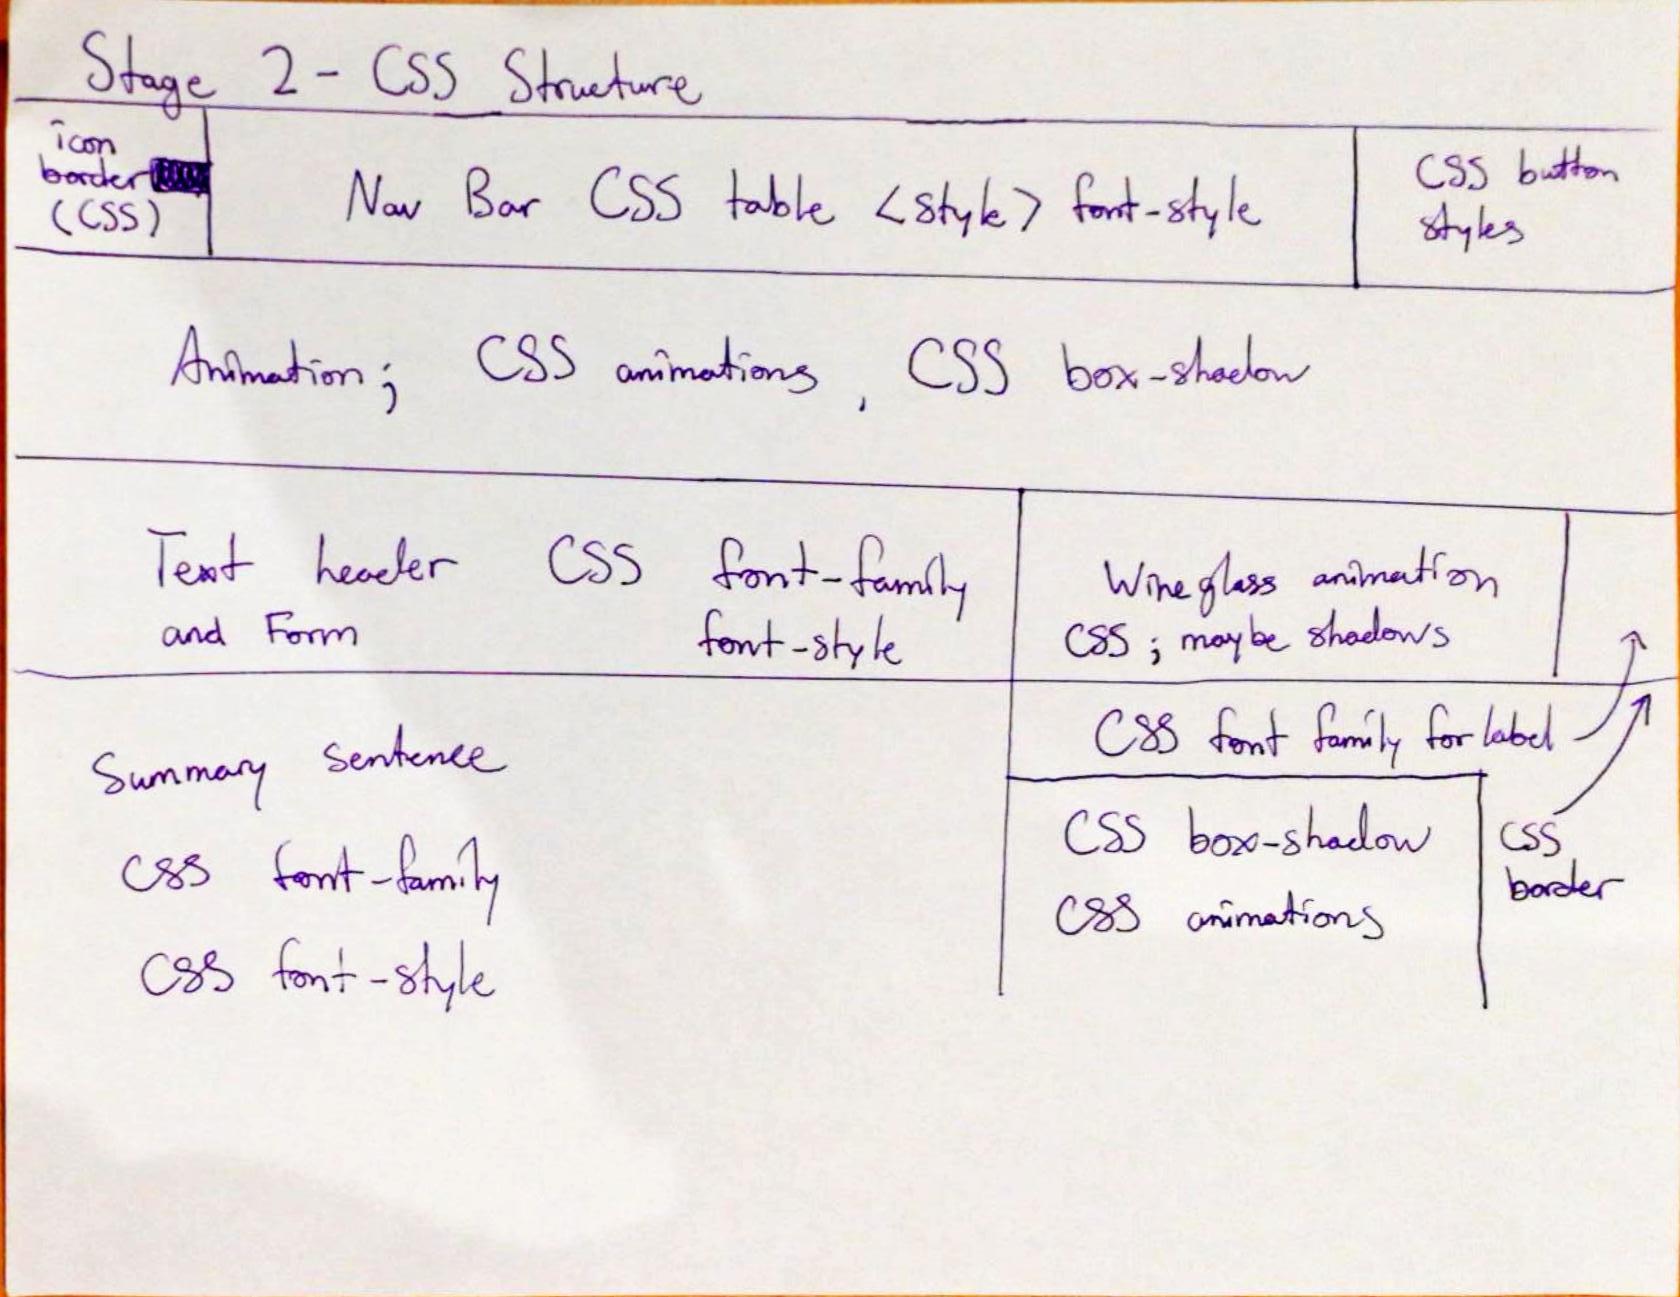 Stage 2 - CSS Structure
icon
border
(CSS)
Nav Bar CSS table <style> font-style
CSS button
styles
Animation; CSS animations, CSS box-shadow
Text header CSS font-family
and Form font-style
Wine glass animation
CSS; maybe shadows
CSS font family for label
Summary sentence
CSS font-family
CSS font-style
CSS box-shadow
CSS animations
CSS
border